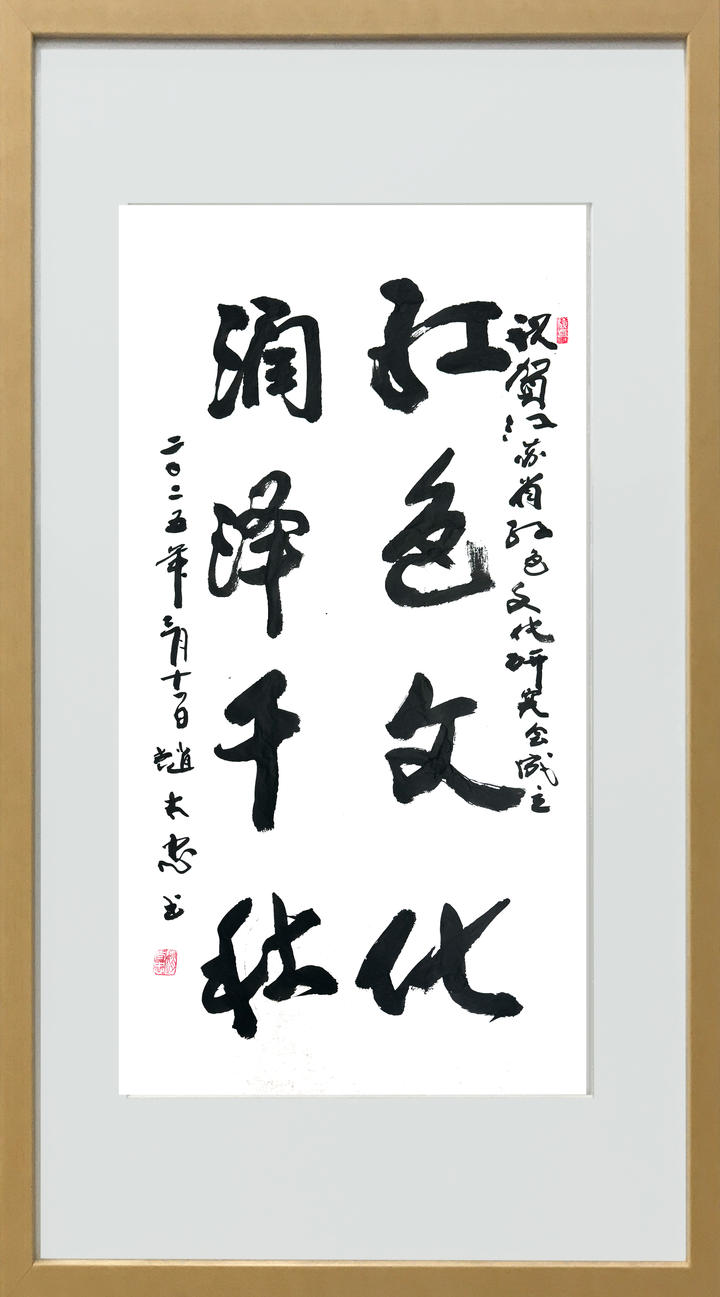 祝贺江苏省红色文化研究会成立
红色文化
润泽千秋
二〇二五年三月十八日 趙太忠书